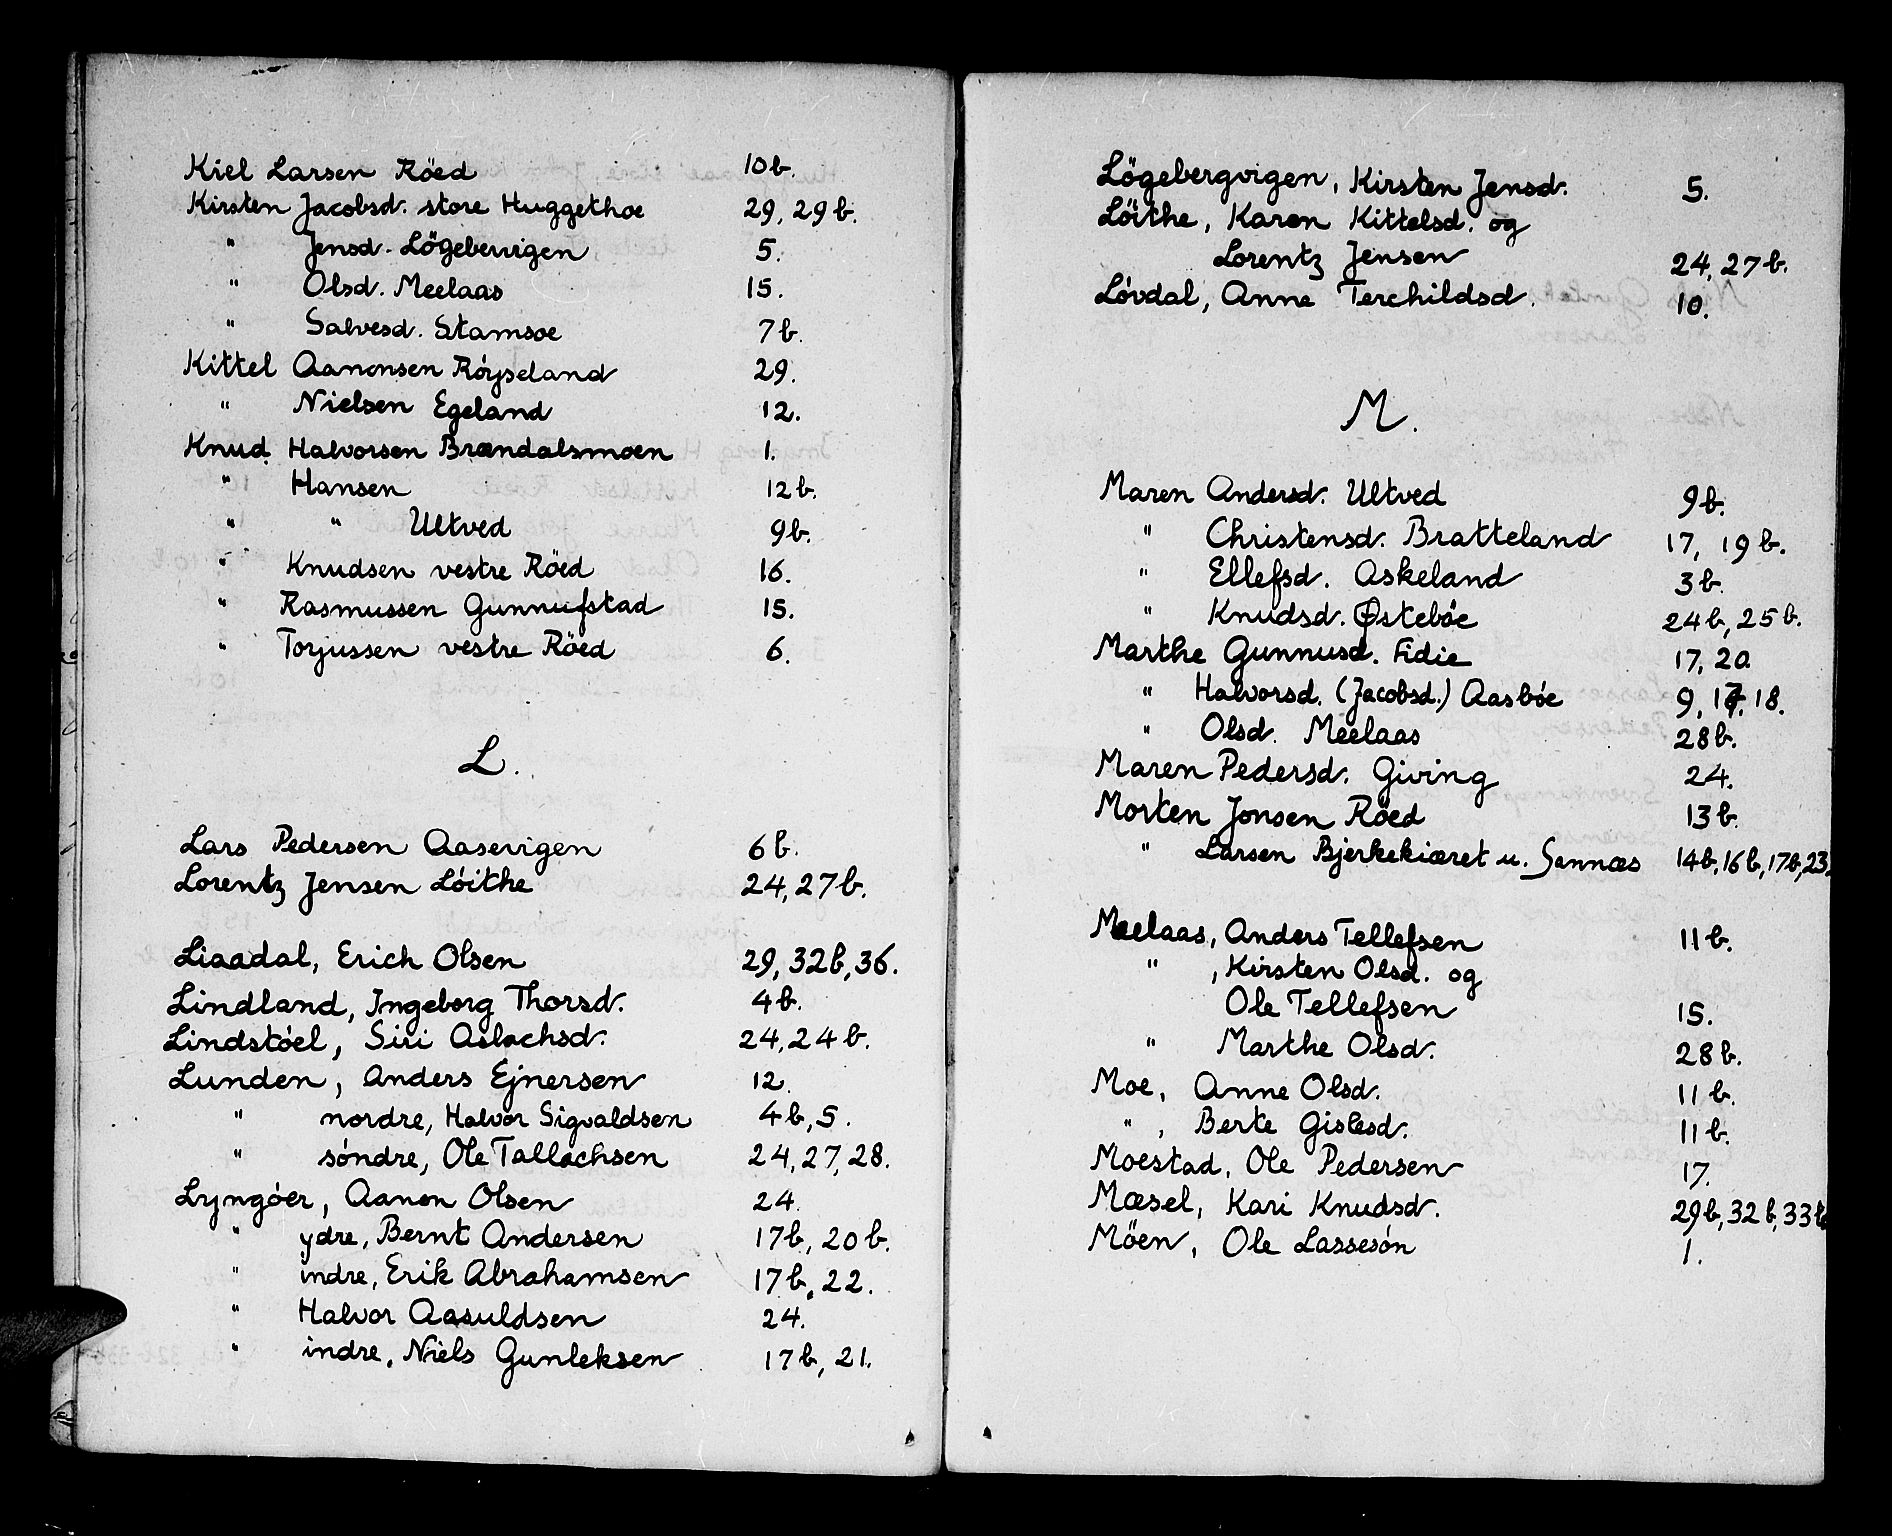 Kiel Larsen Röed 10b.
Kirsten Jacobsd. store Huggethoe 29, 29b.
" Jensd. Lögebervigen 5.
" Olsd. Meelaas 15.
" Salvesd. Stamsoe 7b.
Kittel Aanonsen Röyseland 29.
" Nielsen Egeland 12.
Knud Halvorsen Brændalsmoen 1.
" Hansen 12b.
" " Ultved 9b.
" Knudsen vestre Röed 16.
" Rasmussen Gunnufstad 15.
" Torjussen vestre Röed 6.
L.
Lars Pedersen Aasevigen 6b.
Lorentz Jensen Löithe 24, 27b.
Liaadal, Erich Olsen 29, 32b, 36.
Lindland, Ingeborg Thorsd. 4b.
Lindstöel, Siri Aslachsd. 24, 24b.
Lunden, Anders Ejnersen 12.
" nordre, Halvor Sigvaldsen 4b, 5.
" söndre, Ole Tallachsen 24, 27, 28.
Lyngöer, Aanon Olsen 24.
" ydre, Bernt Andersen 17b, 20b.
" indre, Erik Abrahamsen 17b, 22.
" Halvor Aasuldsen 24.
" indre, Niels Gunleksen 17b, 21.
Lögebergvigen, Kirsten Jensd. 5.
Löithe, Karen Kittelsd. og
Lorentz Jensen 24, 27b.
Lövdal, Anne Terchildsd. 10.
M.
Maren Andersd. Ultved 9b.
" Christensd. Bratteland 17, 19b.
" Ellefsd. Askeland 3b.
" Knudsd. Østeböe 24b, 25b.
Marthe Gunnusd. Fidie 17, 20
" Halvorsd. (Jacobsd.) Aasböe 9, 17, 18.
" Olsd. Meelaas 28b.
Maren Pedersd. Giving 24.
Morten Jonsen Röed 13b.
" Larsen Bjerkekiæret u. Sannæs 14b, 16b, 17b, 23.
Meelaas, Anders Tellefsen 11b.
" , Kirsten Olsd. og
Ole Tellefsen 15.
" Marthe Olsd. 28b.
Moe, Anne Olsd. 11b.
" , Berte Gislesd. 11b.
Moestad, Ole Pedersen 17.
Mæsel, Kari Knudsd. 29b, 32b, 33b
Möen, Ole Lassesön 1.